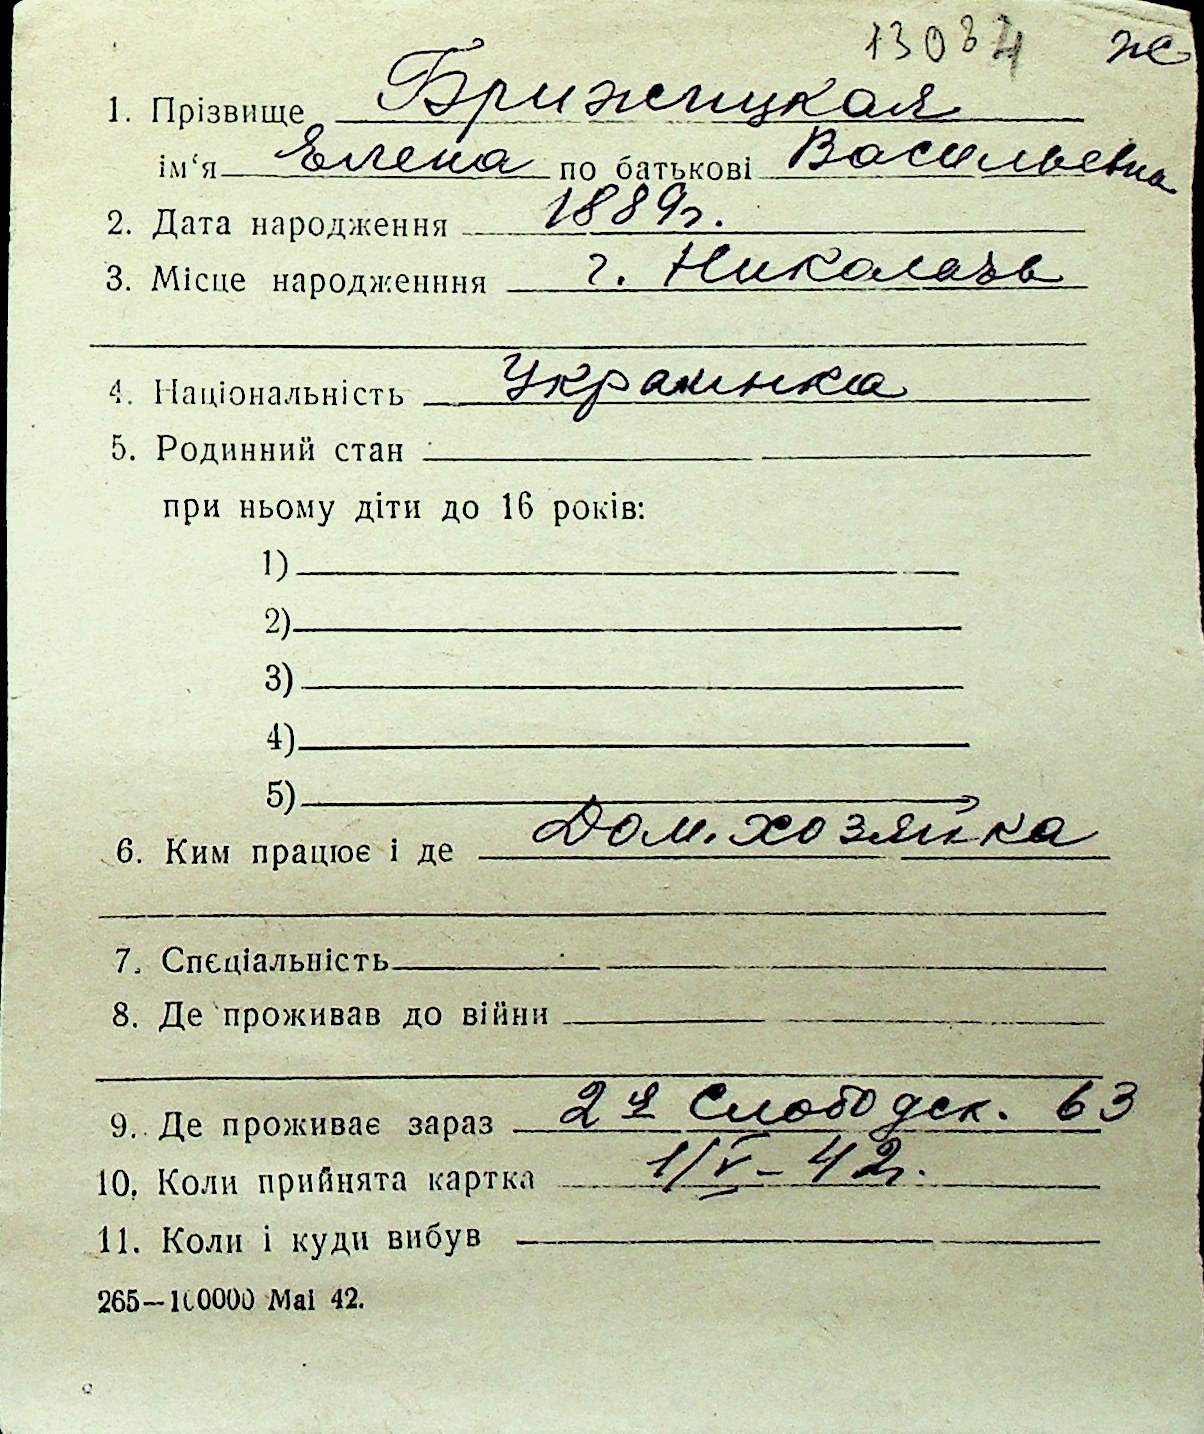 13034 Ж
1. Прізвище Брижицкая
ім‘я Елена по батькові Васильевна
2. Дата народження 1889г.
3. Місце народженння г. Николаев
4. Національність Украинка
5. Родинний стан
при ньому діти до 16 років:
1)
2)
3)
4)
5)
6. Ким працює і де Дом. хозяйка
7. Спєціальність
8. Де проживав до війни
9. Де проживає зараз 2я Слободск. 63
10. Коли прийнята картка 1/V-42г.
11. Коли і куди вибув
265—100000 Mai 42.